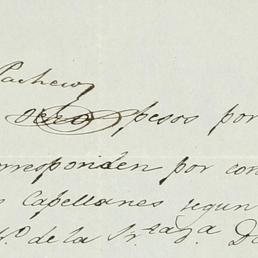 Pacheco
ocho pesos por
orresponden por con
s Capellanes segun
de la Sr.